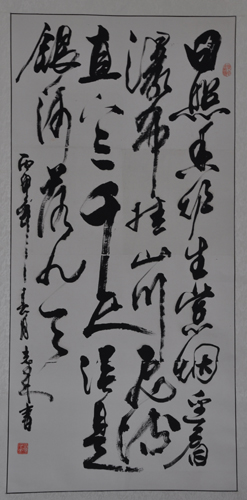 日照香炉生紫烟遥看
瀑布挂前川飛流
直下三千尺疑是
銀河落九天
丙申年之春月書